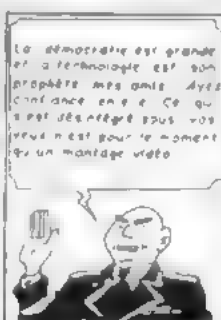 La démocratie est grande
et la technologie est son
prophète mes amis. Ayez
confiance en elle. Ce qui
s'est désintégré sous vos
yeux n'est pour le moment
qu'un montage vidéo.